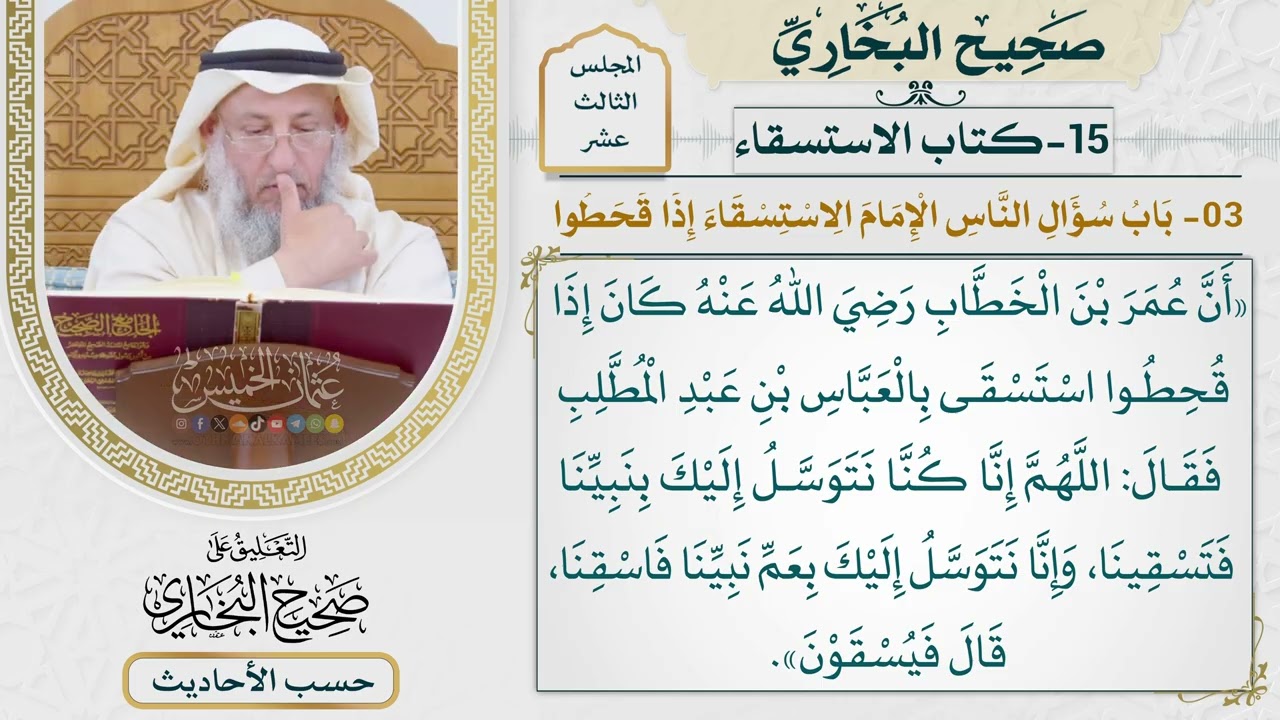 صَحِيح البُخَارِيِّ
المجلس
الثالث
عشر
15-كتاب الاستسقاء
03- بَابُ سُؤَالِ النَّاسِ الْإِمَامَ الِاسْتِسْقَاءَ إِذَا قَحَطُوا
«أَنَّ عُمَرَ بْنَ الْخَطَّابِ رَضِيَ اللهُ عَنْهُ كَانَ إِذَا
قُحِطُوا اسْتَسْقَى بِالْعَبَّاسِ بْنِ عَبْدِ الْمُطَّلِبِ
فَقَالَ: اللَّهُمَّ إِنَّا كُنَّا نَتَوَسَّلُ إِلَيْكَ بِنَبِيِّنَا
فَتَسْقِينَا، وَإِنَّا نَتَوَسَّلُ إِلَيْكَ بِعَمِّ نَبِيِّنَا فَاسْقِنَا،
قَالَ فَيُسْقَوْنَ».
الجامع الصحيح
عُثمان الخميس
التَّعْلِيقُ عَلَى
صَحِيحِ البُخَارِي
حسب الأحاديث